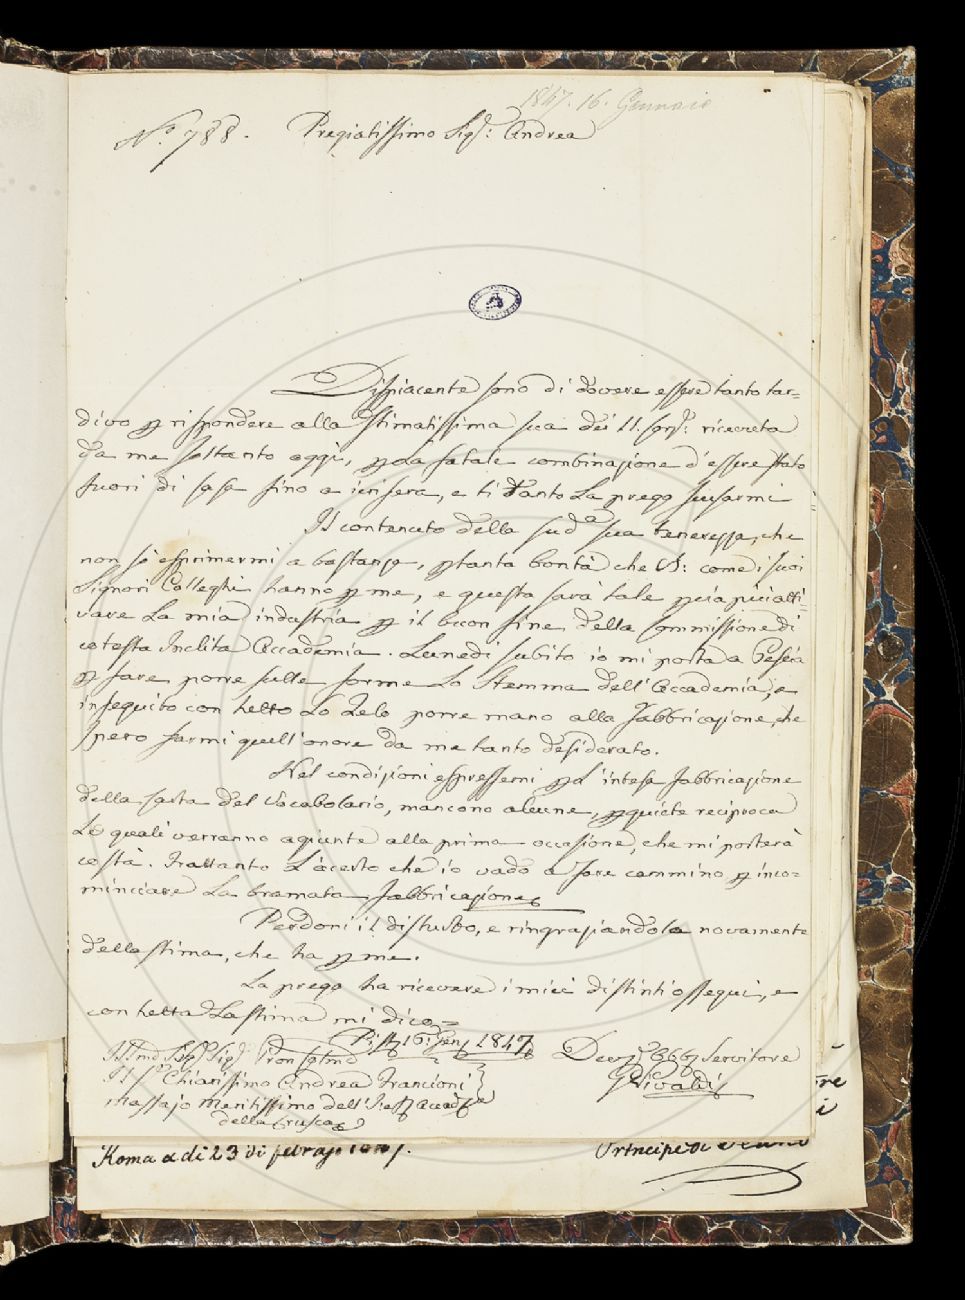 1847. 16. Gennaio
N.º 788. Pregiatissimo Sigʳ: Andrea
Dispiacente sono di dovere essere tanto tar=
divo p rispondere alla stimatissima sua dei 11. corrᵉ: ricevuta
da me soltanto oggi, p la fatale combinazione d'essere stato
fuori di casa fino a ieri sera, e di tanto La prego scusarmi
Il contenuto della sudᵃ sua tenerezza, che
non sò esprimermi a bastanza, p tanta bontà che S: come i suoi
Signori Colleghi hanno p me, e questa sarà tale p via più atti=
vare La mia industria p il buon fine della Commissione di
cotesta Inclita Accademia. Lunedì subito io mi porto a Pescia
p fare porre sulle forme Lo Stemma dell'Accademia, e
in seguito con tutto Lo Zelo porre mano alla Fabbricazione, che
spero farmi quell'onore da me tanto desiderato.
Nel condizioni espressemi p l'intesa fabbricazione
della carta del Vocabolario, mancono alcune, p quiete reciproca
Le quali verranno agiunte alla prima occasione, che mi porterò
costà. Frattanto L'acerto che io vado a fore cammino p inco=
minciare La bramata fabbricazione
Perdoni il disturbo, e ringraziandola novamente
della stima, che ha p me.
La prego ha ricevere i miei distinti ossequi, e
con tutta La stima mi dico=
16: Gen 1847
Illmo Sigʳ Sigʳ Pron Colmo
Il Sʳ Chiarissimo Andrea Francioni
Massajo Meritissimo dell' Accadᵃ
della Crusca
Servitore
G Vivaldi
Roma a di 23 di
Principe di